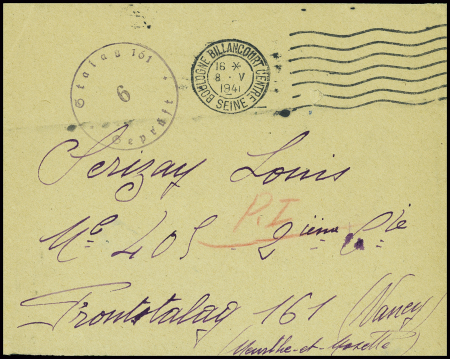 Stalag 161
6
Geprüft
BOULOGNE BILLANCOURT CENTRE
16 *
8 - V
1941
SEINE
Serizay Louis
P.I
Nº 405 2ième Cie
Frontstalag 161 (Nancy)
(Meurthe-et-Moselle)